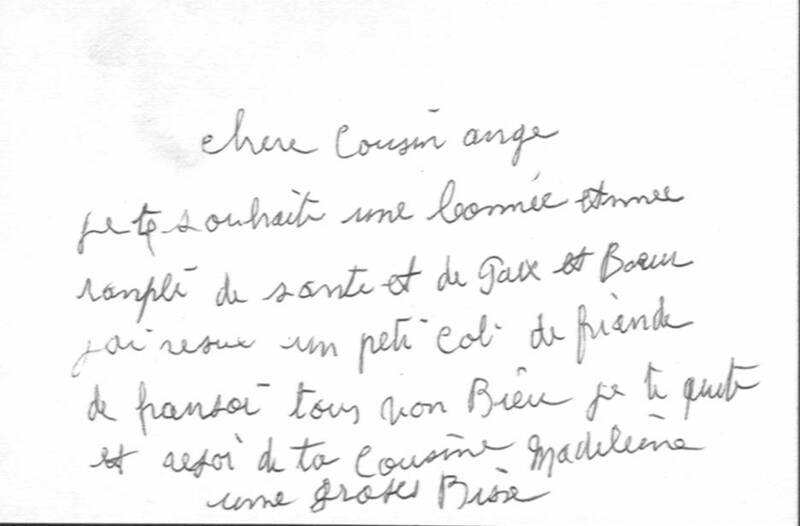 chere Cousin ange
je te souhaite une bonnée annee
ranpli de sante et de Paix et Boeur
j'ai resue un peti coli de friande
de fransoi tous von Bien je te quite
et resoi de ta Cousine Madeleine
une groses Bise